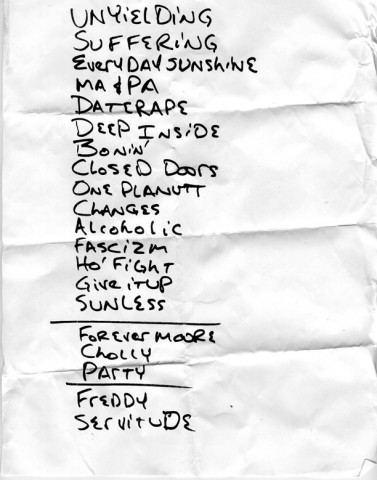 UNYiELDING
SUFFERiNG
EVERYDAY SUNSHiNE
MA & PA
DATERAPE
DEEP INSiDE
BONiN'
CLOSED DOORS
ONE PLANUTT
CHANGES
Alcoholic
FASCiZM
HO' FiGHT
GiVE iT UP
SUNLESS
FOREVER MOORE
CHOLLY
PARTY
FREDDY
SERViTUDE